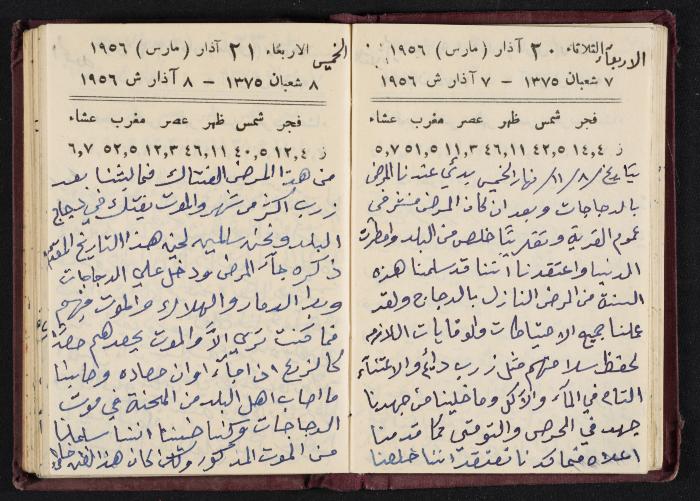 الاربعاء الثلاثاء ٢٠ آذار (مارس) ١٩٥٦
٧ شعبان ١٣٧٥ – ٧ آذار ش ١٩٥٦
فجر شمس ظهر عصر مغرب عشاء
ز ١٤,٤ ٤٢,٥ ٤٦,١١ ١١,٣ ٥١,٥ ٥,٧
بتاريخ /٨/١١ نهار الخميس بدئ عندنا المرض
بالدجاجات وبعد ان كان المرض منتشر في
عموم القرية وتقريبًا خلص من البلد وامطرت
الدنيا واعتقدنا أننا قد سلمنا هذه
السنة من المرض النازل بالدجاج ولقد
عملنا جميع الاحتياطات والوقايات اللازمه
لحفظ سلامتهم مثل زرب دائم والاعتناء
التام في المآء والأكل وما خلينا من جهدنا
جهد في الحرص والتوقي كما قدمنا
اعلاه فما كدنا نعتقد اننا خلصنا
الخميس الاربعاء ٢١ آذار (مارس) ١٩٥٦
٨ شعبان ١٣٧٥ – ٨ آذار ش ١٩٥٦
فجر شمس ظهر عصر مغرب عشاء
ز ١٢,٤ ٤٠,٥ ٤٦,١١ ١٢,٣ ٥٢,٥ ٦,٧
من هذا المرض الفتاك فما لبثنا بعد
زرب اكثر من شهر والموت يفتك في دجاج
البلد ونحن سالمين لحينه هذا التاريخ المقدم
ذكره جآء المرض ودخل علي الدجاجات
وبدا الدمار والهلاك والموت فيهم
فما كنت تري الاَّ والموت يحصدهم حصدًا
كالزرع اذا جآء اوان حصاده وصابنا
ما اصاب اهل البلد من المحنة في موت
الدجاجات وكنا حسبنا اننا سلمانين
من الموت المذكور وكان هذا